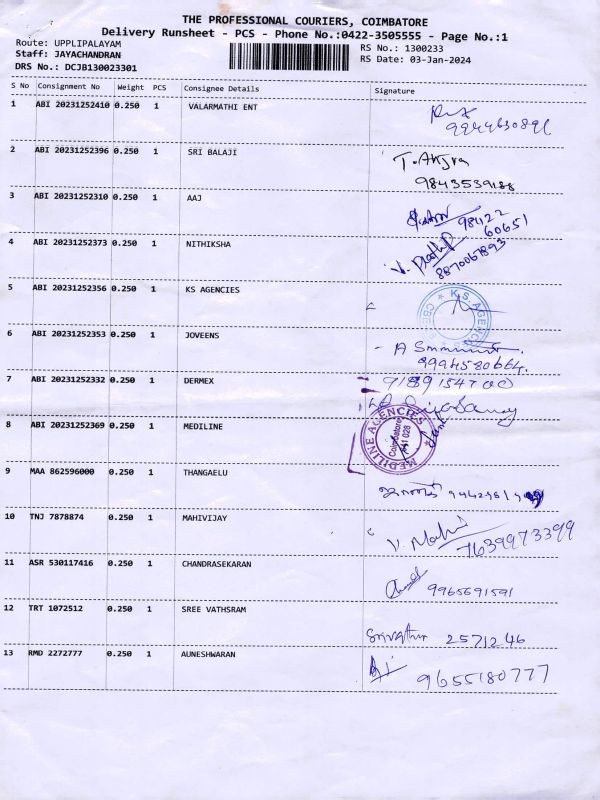 THE PROFESSIONAL COURIERS, COIMBATORE
Delivery Runsheet - PCS - Phone No.:0422-3505555 - Page No.:1
Route: UPPLIPALAYAM
Staff: JAYACHANDRAN
DRS No.: DCJB130023301
RS No.: 1300233
RS Date: 03-Jan-2024
S No Consignment No Weight PCS Consignee Details Signature
1 ABI 20231252410 0.250 1 VALARMATHI ENT
2 ABI 20231252396 0.250 1 SRI BALAJI
9843539188
3 ABI 20231252310 0.250 1 AAJ
98422
60651
4 ABI 20231252373 0.250 1 NITHIKSHA
8870067893
5 ABI 20231252356 0.250 1 KS AGENCIES
K.S. AGENCIES
6 ABI 20231252353 0.250 1 JOVEENS
9994580664.
7 ABI 20231252332 0.250 1 DERMEX
8 ABI 20231252369 0.250 1 MEDILINE
MEDILINE AGENCIES
Coimbatore
641 028
9 MAA 862596000 0.250 1 THANGAELU
10 TNJ 7878874 0.250 1 MAHIVIJAY
V. Mahi
7639973399
11 ASR 530117416 0.250 1 CHANDRASEKARAN
9965691591
12 TRT 1072512 0.250 1 SREE VATHSRAM
Srivathsa 2571246
13 RMD 2272777 0.250 1 AUNESHWARAN
9655180777